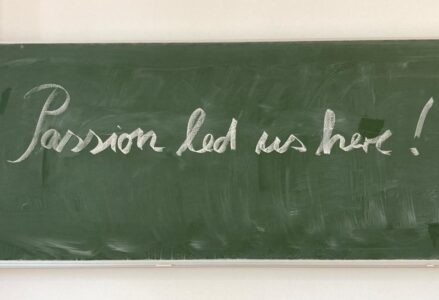 Passion led us here!